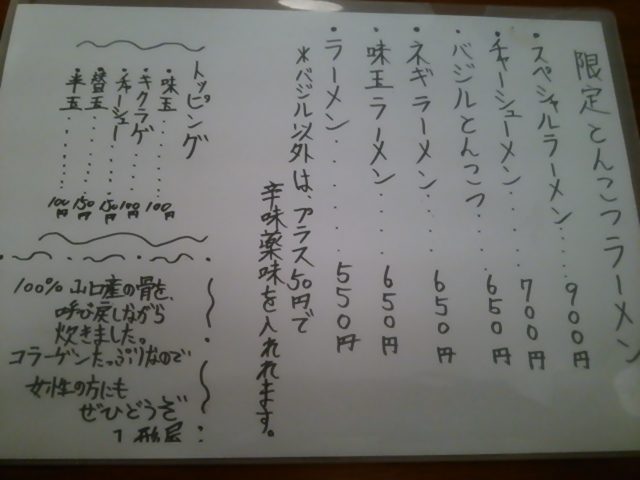 限定とんこつラーメン
・スペシャルラーメン・・・・900円
・チャーシューメン・・・・700円
・バジルとんこつ・・・・650円
・ネギラーメン・・・・650円
・味玉ラーメン・・・・650円
・ラーメン・・・・・・550円
*バジル以外は、プラス50円で
辛味薬味を入れれます。
トッピング
・味玉・・・・・・100円
・キクラゲ・・・・100円
・チャーシュー・・・・150円
・替玉・・・・・・150円
・半玉・・・・・・100円
100%山口産の骨を、
呼び戻しながら
炊きました。
コラーゲンたっぷりなので
女性の方にも
ぜひどうぞ